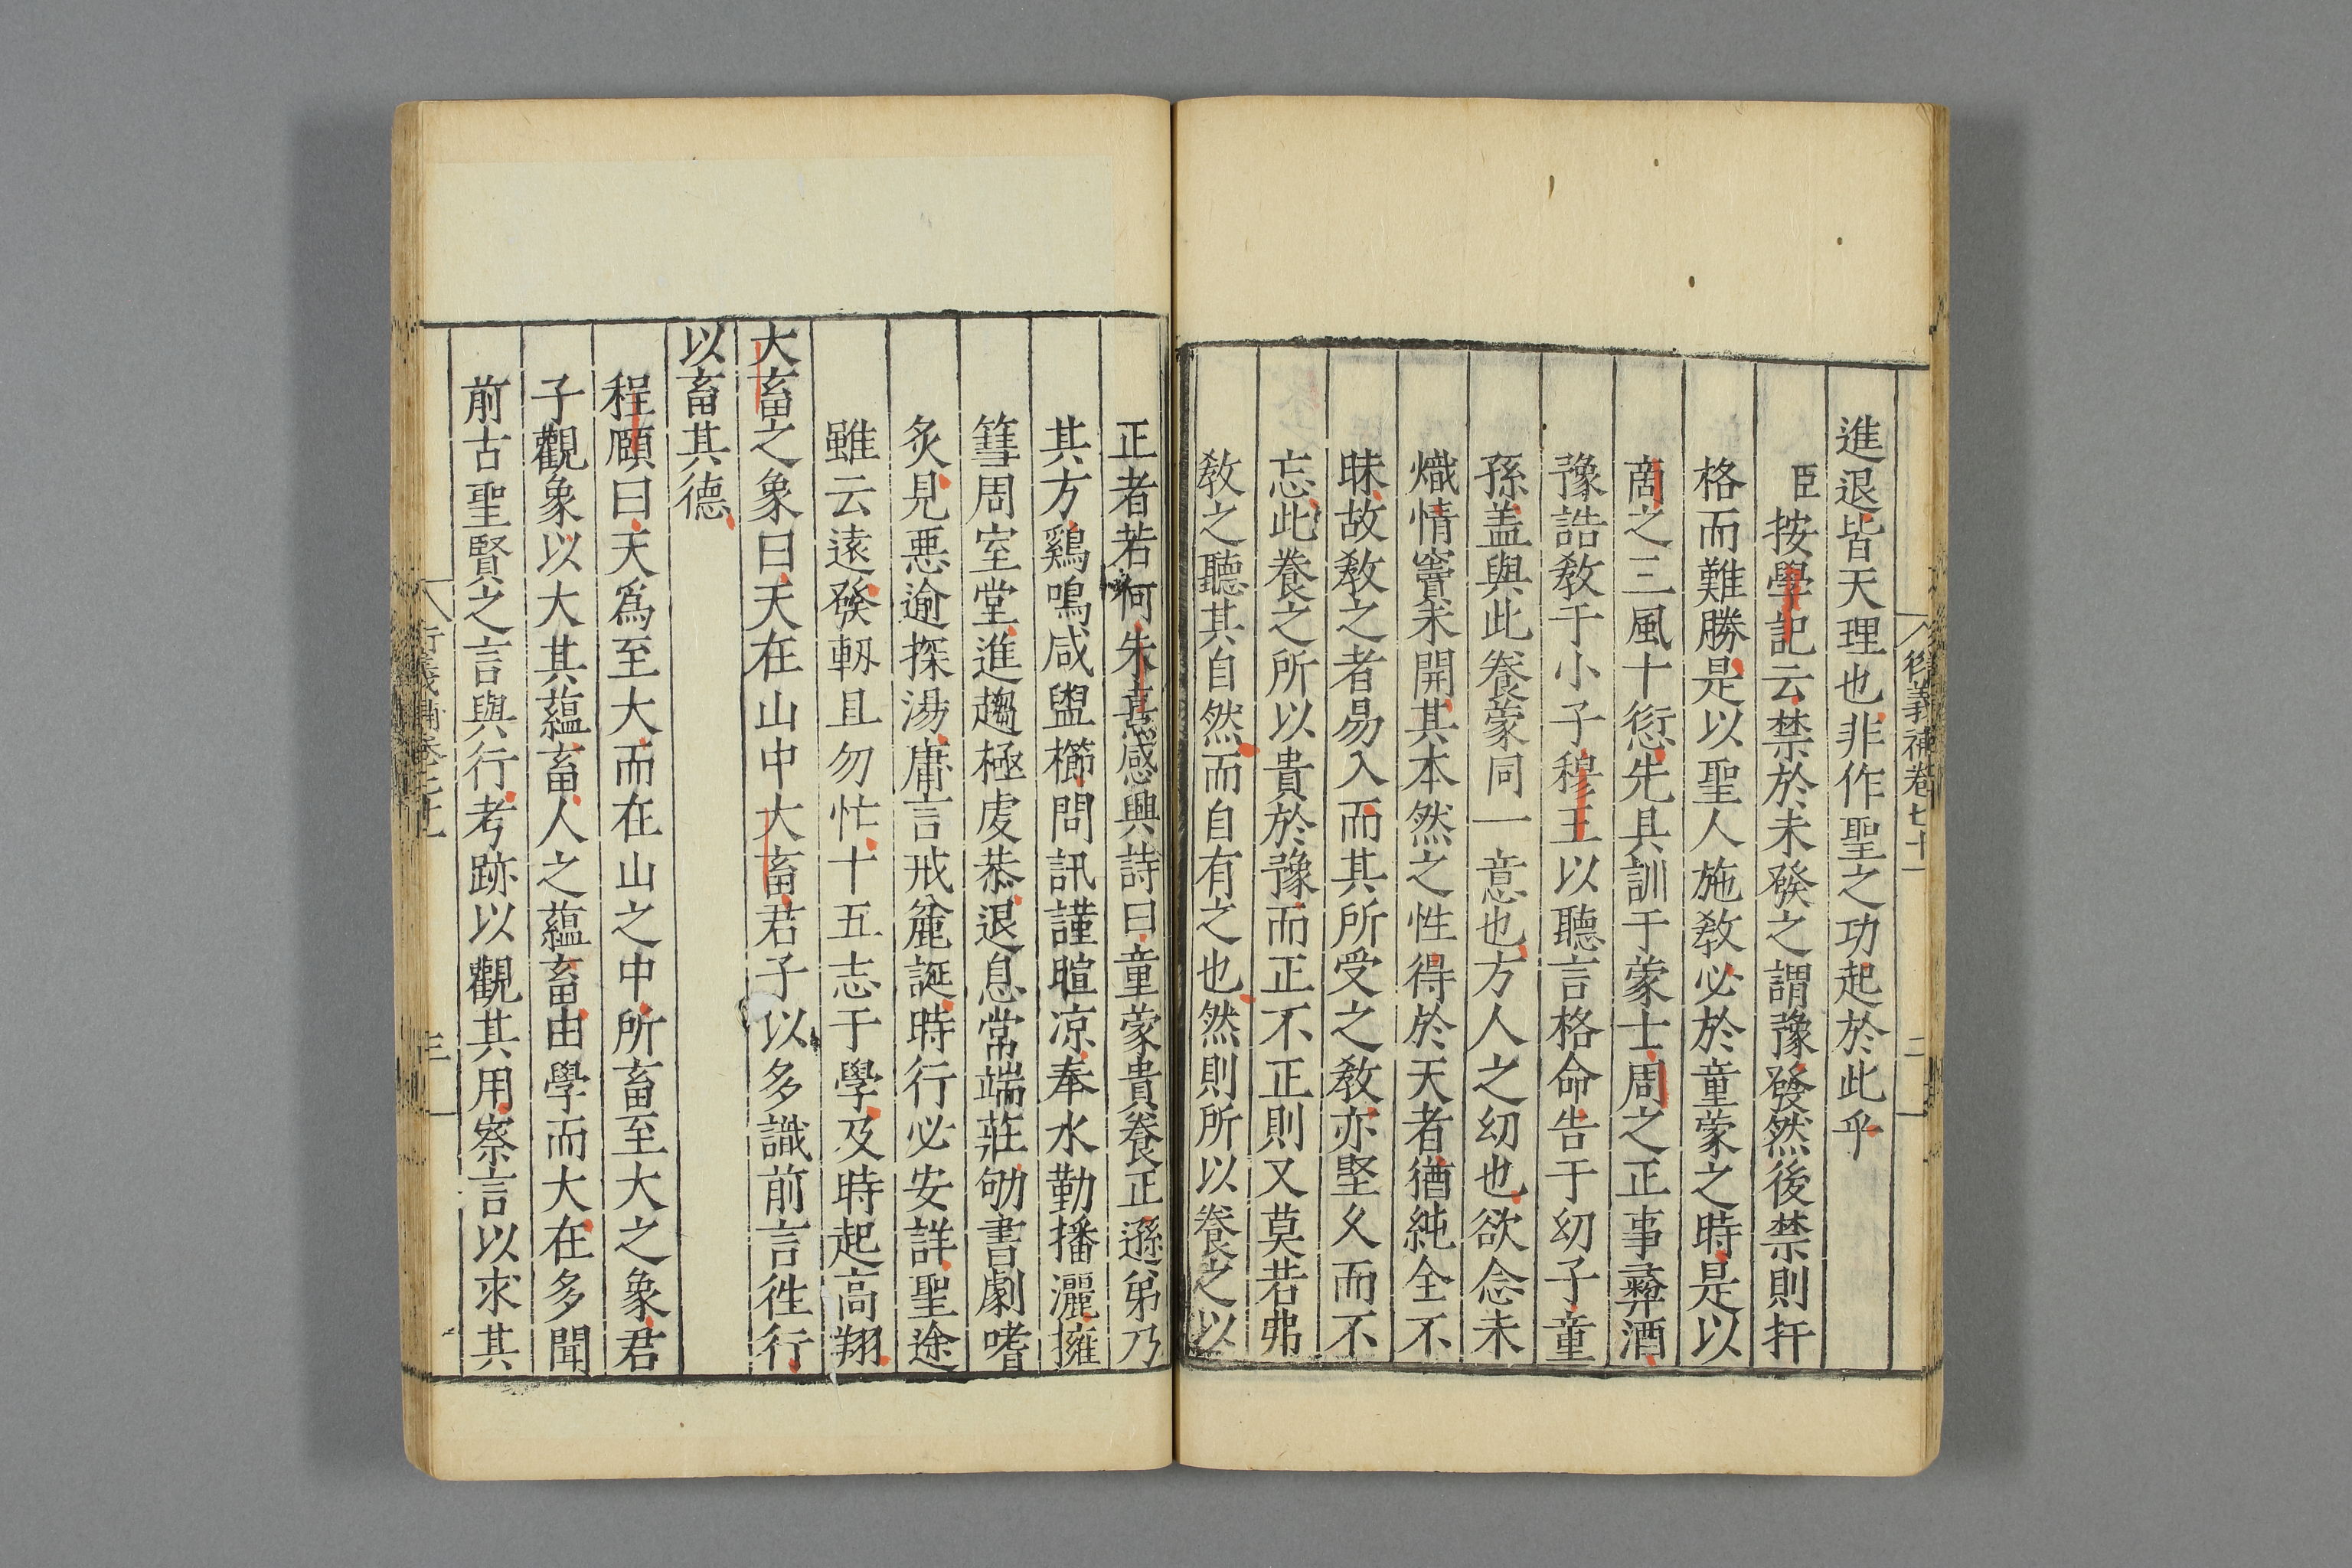 衍義補卷七十一
二
進退皆天理也非作聖之功起於此乎
臣按學記云禁於未發之謂豫發然後禁則扞
格而難勝是以聖人施教必於童蒙之時是以
商之三風十愆先具訓于蒙士周之正事彛酒
豫誥教于小子穆王以聽言格命告于幼子童
孫盖與此養蒙同一意也方人之幼也欲念未
熾情竇未開其本然之性得於天者猶純全不
昧故教之者易入而其所受之教亦堅久而不
忘此養之所以貴於豫而正不正則又莫若弗
教之聽其自然而自有之也然則所以養之以
正者若何朱熹感興詩曰童蒙貴養正遜弟乃
其方鷄鳴咸盥櫛問訊謹暄凉奉水勤播灑擁
篲周室堂進趨極虔恭退息常端莊劬書劇嗜
炙見悪逾探湯庸言戒麄誕時行必安詳聖途
雖云遠發軔且勿忙十五志于學及時起高翔
大畜之象曰天在山中大畜君子以多識前言徃行
以畜其德
程頤曰天爲至大而在山之中所畜至大之象君
子觀象以大其蘊畜人之蘊畜由學而大在多聞
前古聖賢之言與行考跡以觀其用察言以求其
衍義補卷七十一
三